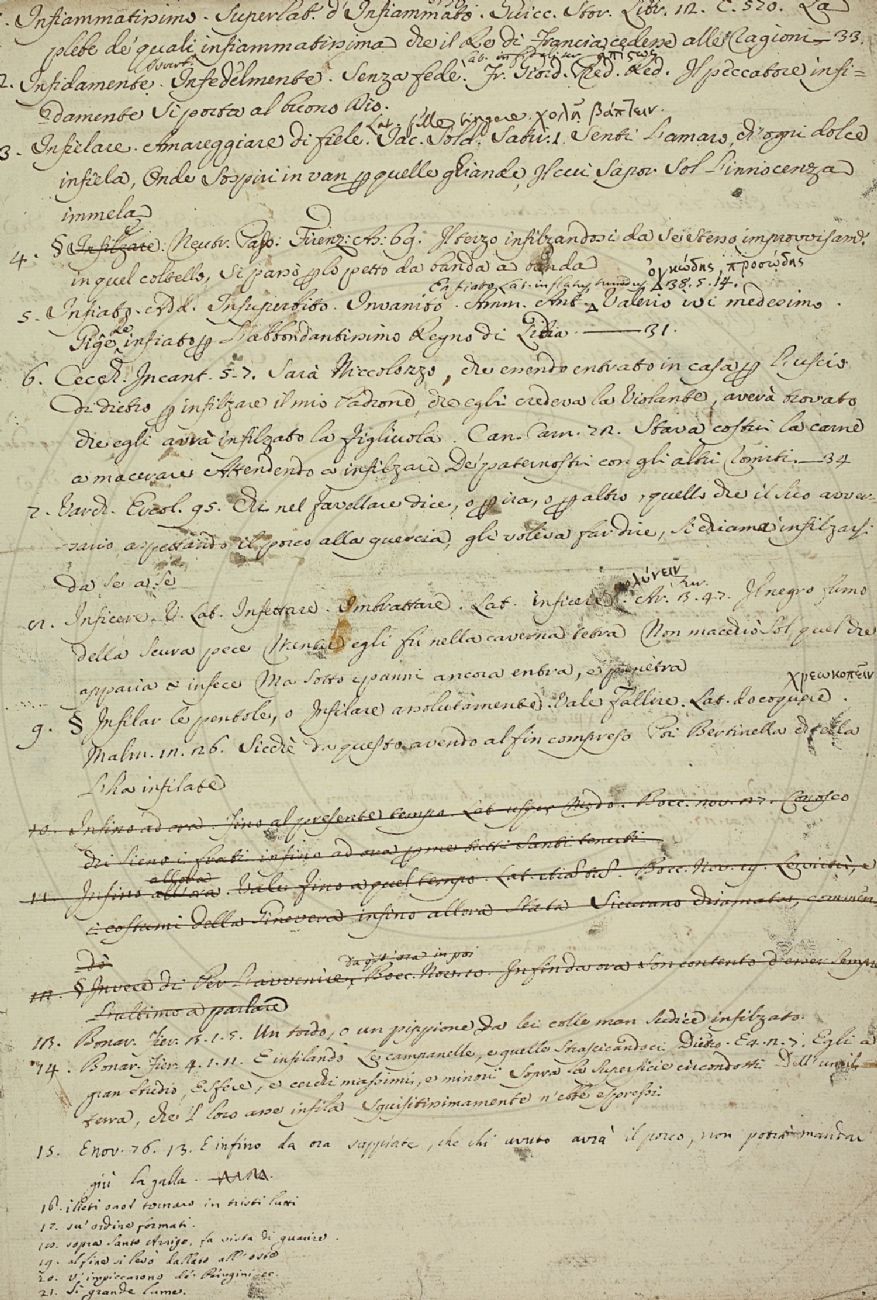 1. Infiammatissimo. Superlat. d'Infiammato. Guicc. Stor. Libr. 12. C. 520. La
plebe de' quali infiammatissima che il Re di Francia cedesse alle Cagioni — 33.
2. Infidamente. Avverb. Infedelmente. Senza fede. Lat. ἀπίστως Fr. Giord. Pred. Red. Il peccatore infi-
damente si porta al buono Dio.
3. Infielare. Amareggiare di fiele. Lat. felle tingere. χολῇ βάπτειν. Jac. Sold. Satir. 1. Senti l'amaro, ch'ogni dolce
infiela, Onde sospiri in van quelle ghiande, Il cui sapor sol l'innocenza
immela
4. § Infilzare. Neutr. Pass. Firenz. As. 69. Il terzo infilzandosi da se stesso improvvisam.
in quel coltello, si passò lo petto da banda a banda
5. Infiato. Add. Insuperbito. Invanito. Enfiato. Lat. inflatus, tumidus ὀγκώδης, Amm. Ant. 38. 5. 14. Valerio ivi medesimo.
Gige Re infiato l'abbondantissimo Regno di Lidia — 31.
6. Cecch. Incant. 5. 7. Sarà Niccolozzo, che essendo entrato in casa l'uscio
di dietro infilzare il mio Padrone, che egli credeva la Violante, averà trovato
che egli avrà infilzato la figliuola. Can. Carn. 22. Stava costui la carne
a macerare Attendendo a infilzare De' paternostri con gli altri Romiti. — 34
7. Varch. Ercol. 95. Chi nel favellare dice, o ira, o altro, quello che il suo avver-
sario, aspettando il porco alla quercia, gli voleva far dire, si chiama infilzarsi
da se a se
8. Inficere. V. Lat. Infettare. Imbrattare. Lat. inficere. μολύνειν. Ar. Fur. 13. 47. Il negro fumo
della scura pece Mentre egli fu nella caverna tetra Non macchiò sol quel che
apparia e infece Ma sotto i panni ancora entra, e penetra
9. § Infilar le pentole, o Infilare assolutamente. Vale Fallire. Lat. decoquere. χρεωκοπεῖν
Malm. 12. 26. Sicchè da questo avendo al fin compreso Poi Bertinella ch'ella
l'ha infilate
10. Infino ad ora. Fino al presente tempo. Lat. usque Bocc. nov. 27. Conosco
che sieno i frati infino ad ora me tutti santi tenuti
11. Infino allora. Vale Fino a quel tempo. Bocc. Nov. 19. Levatasi, e
i costumi della Ginevera infino allora stata Sicurano disamato, commen-
dò
12. § Invece di Per l'avvenire, da quest'ora in poi Bocc. Infin da ora son contento d'esser sempre
l'ultimo a parlare
13. Bonar. Fier. 2. 1. 5. Un tordo, o un pippione da lei colle man sudice infilzato.
14. Bonar. Fier. 4. 1. 11. E infilando Le campanelle, e quelle strascicandoci Detto. E 4. 2. 7. Egli a
gran studio, e cerchi massimi, e minori Sopra la superficie circondotti Dell'una
terra, che 'l loro asse infila Squisitissimamente v'ebbe espressi
15. E nov. 76. 13. E infino da ora sappiate, che chi avuto avrà il porco, non potrà mandar
giù la galla.
16. i lieti onor tornaro in tristi lutti
17. su' ordine formati.
18. sopra Santo Arrigo, fa vista di guarire.
19. al fine si levò dallato all'oste
20. v'impiccarono de' Perugini ec.
21. Sì grande lume.